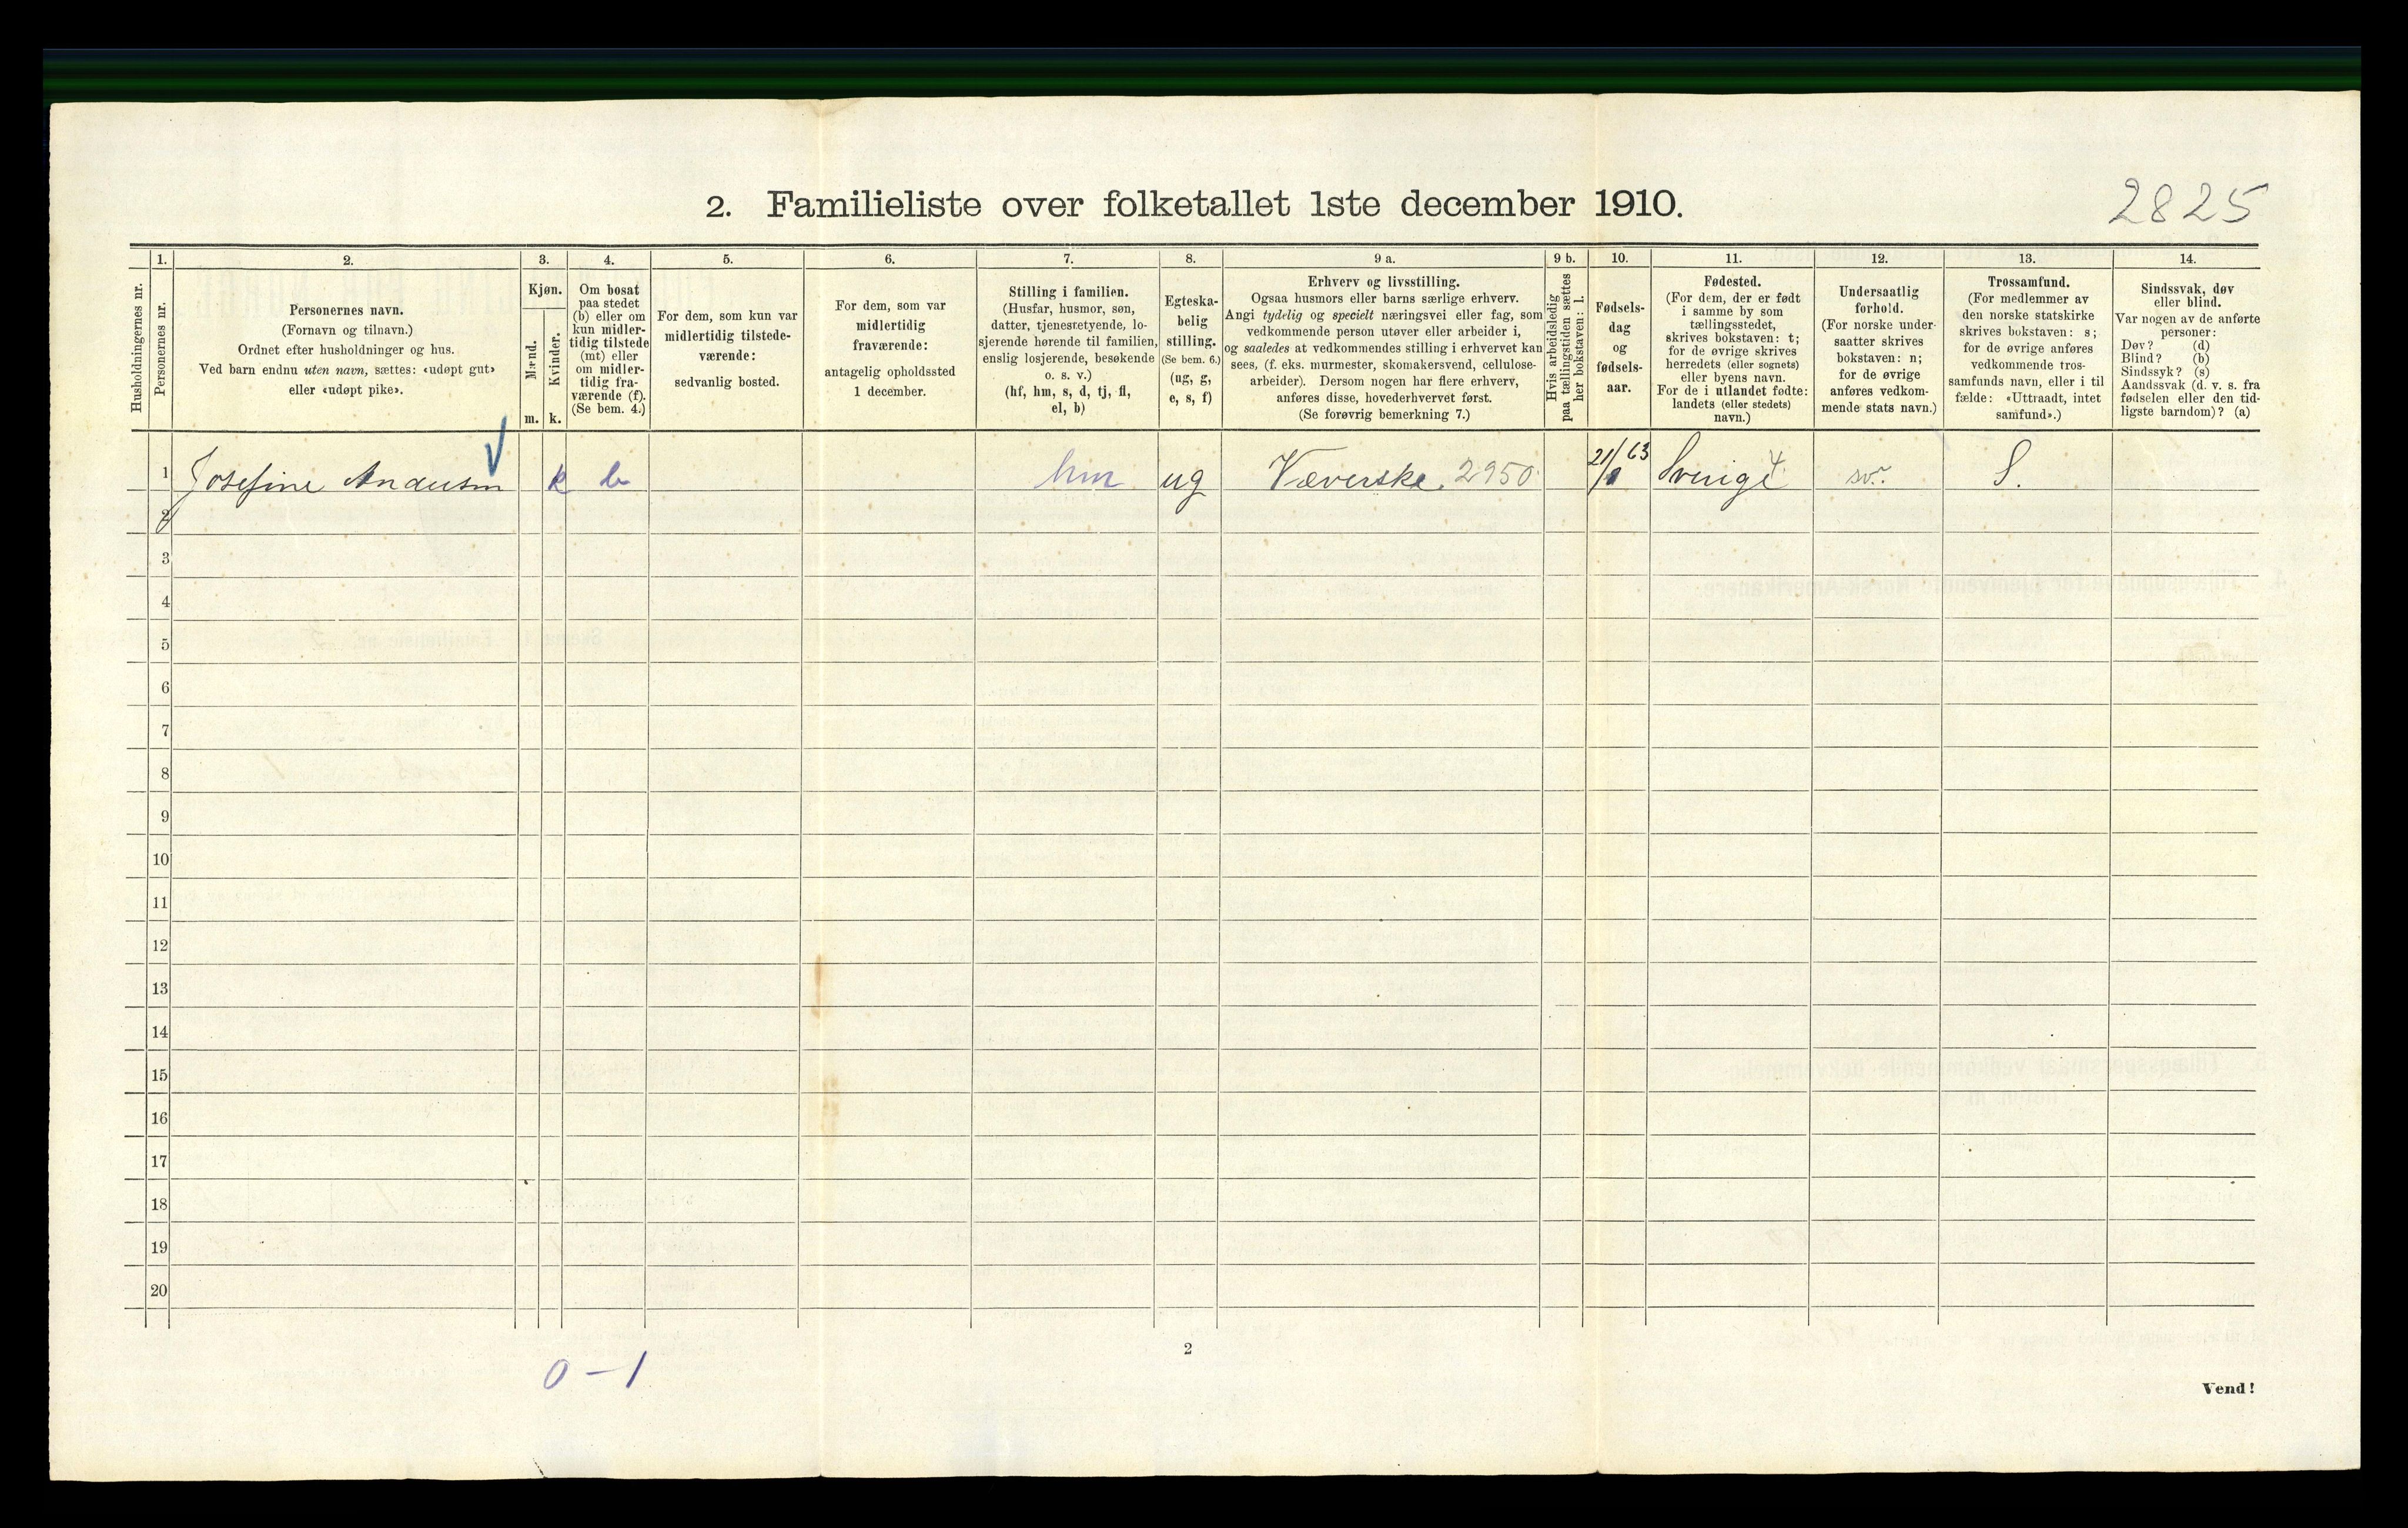 2825
2. Familieliste over folketallet 1ste december 1910.
Husholdningernes nr.
1.
Personernes nr.
2.
Personernes navn.
(Fornavn og tilnavn.)
Ordnet efter husholdninger og hus.
Ved barn endnu uten navn, sættes: «udøpt gut»
eller «udøpt pike».
3.
Kjøn.
Mænd.
m.
Kvinder.
k.
4.
Om bosat
paa stedet
(b) eller om
kun midler-
tidig tilstede
(mt) eller
om midler-
tidig fra-
værende (f).
(Se bem. 4.)
5.
For dem, som kun var
midlertidig tilstede-
værende:
sedvanlig bosted.
6.
For dem, som var
midlertidig
fraværende:
antagelig opholdssted
1 december.
7.
Stilling i familien.
(Husfar, husmor, søn,
datter, tjenestetyende, lo-
sjerende hørende til familien,
enslig losjerende, besøkende
o. s. v.)
(hf, hm, s, d, tj, fl,
el, b)
8.
Egteska-
belig
stilling.
(Se bem. 6.)
(ug, g,
e, s, f)
9 a.
Erhverv og livsstilling.
Ogsaa husmors eller barns særlige erhverv.
Angi tydelig og specielt næringsvei eller fag, som
vedkommende person utøver eller arbeider i,
og saaledes at vedkommendes stilling i erhvervet kan
sees, (f. eks. murmester, skomakersvend, cellulose-
arbeider). Dersom nogen har flere erhverv,
anføres disse, hovederhvervet først.
(Se forøvrig bemerkning 7.)
9 b.
Hvis arbeidsledig
paa tællingstiden sættes
her bokstaven: l.
10.
Fødsels-
dag
og
fødsels-
aar.
11.
Fødested.
(For dem, der er født
i samme by som
tællingsstedet,
skrives bokstaven: t;
for de øvrige skrives
herredets (eller sognets)
eller byens navn.
For de i utlandet fødte:
landets (eller stedets)
navn.)
12.
Undersaatlig
forhold.
(For norske under-
saatter skrives
bokstaven: n;
for de øvrige
anføres vedkom-
mende stats navn.)
13.
Trossamfund.
(For medlemmer av
den norske statskirke
skrives bokstaven: s;
for de øvrige anføres
vedkommende tros-
samfunds navn, eller i til
fælde: «Uttraadt, intet
samfund».)
14.
Sindssvak, døv
eller blind.
Var nogen av de anførte
personer:
Døv? (d)
Blind? (b)
Sindssyk? (s)
Aandssvak (d. v. s. fra
fødselen eller den tid-
ligste barndom)? (a)
1 Josefine Andersen k b hm ug Væverske. 2950 21/ 63 Sverige 4 sv. S.
2
3
4
5
6
7
8
9
10
11
12
13
14
15
16
17
18
19
20
0 - 1
2
Vend!